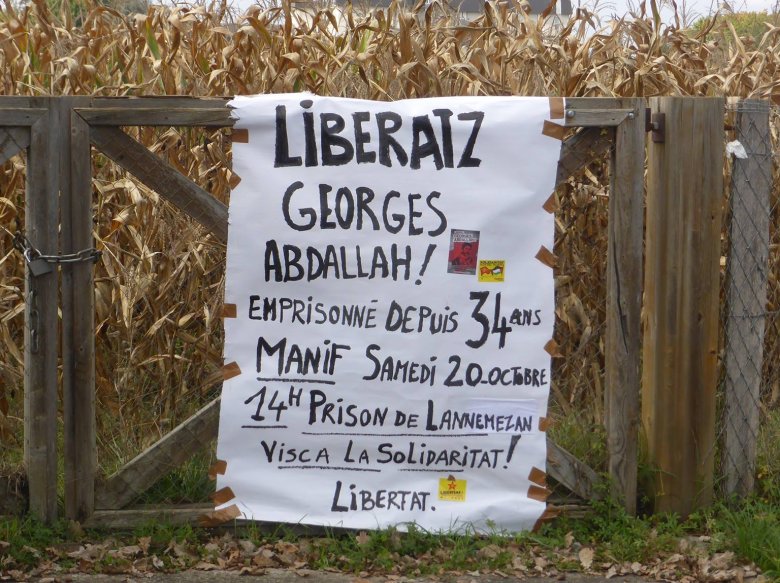 LIBERATZ
GEORGES
ABDALLAH!
EMPRISONNÉ DEPUIS 34 ANS
MANIF SAMEDI 20 OCTOBRE
14H PRISON DE LANNEMEZAN
VISCA LA SOLIDARITAT!
LIBERTAT.